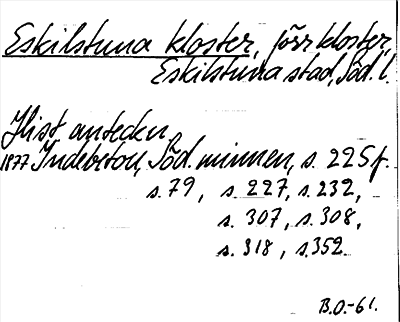 Eskilstuna kloster, förr kloster,
Eskilstuna stad, Söd.l.
Hist anteckn
1877 Indebetou, Söd. minnen, s. 225f.
s. 79, s. 227, s. 232,
s. 307, s. 308,
s. 318, s. 352.
B.O.-61.